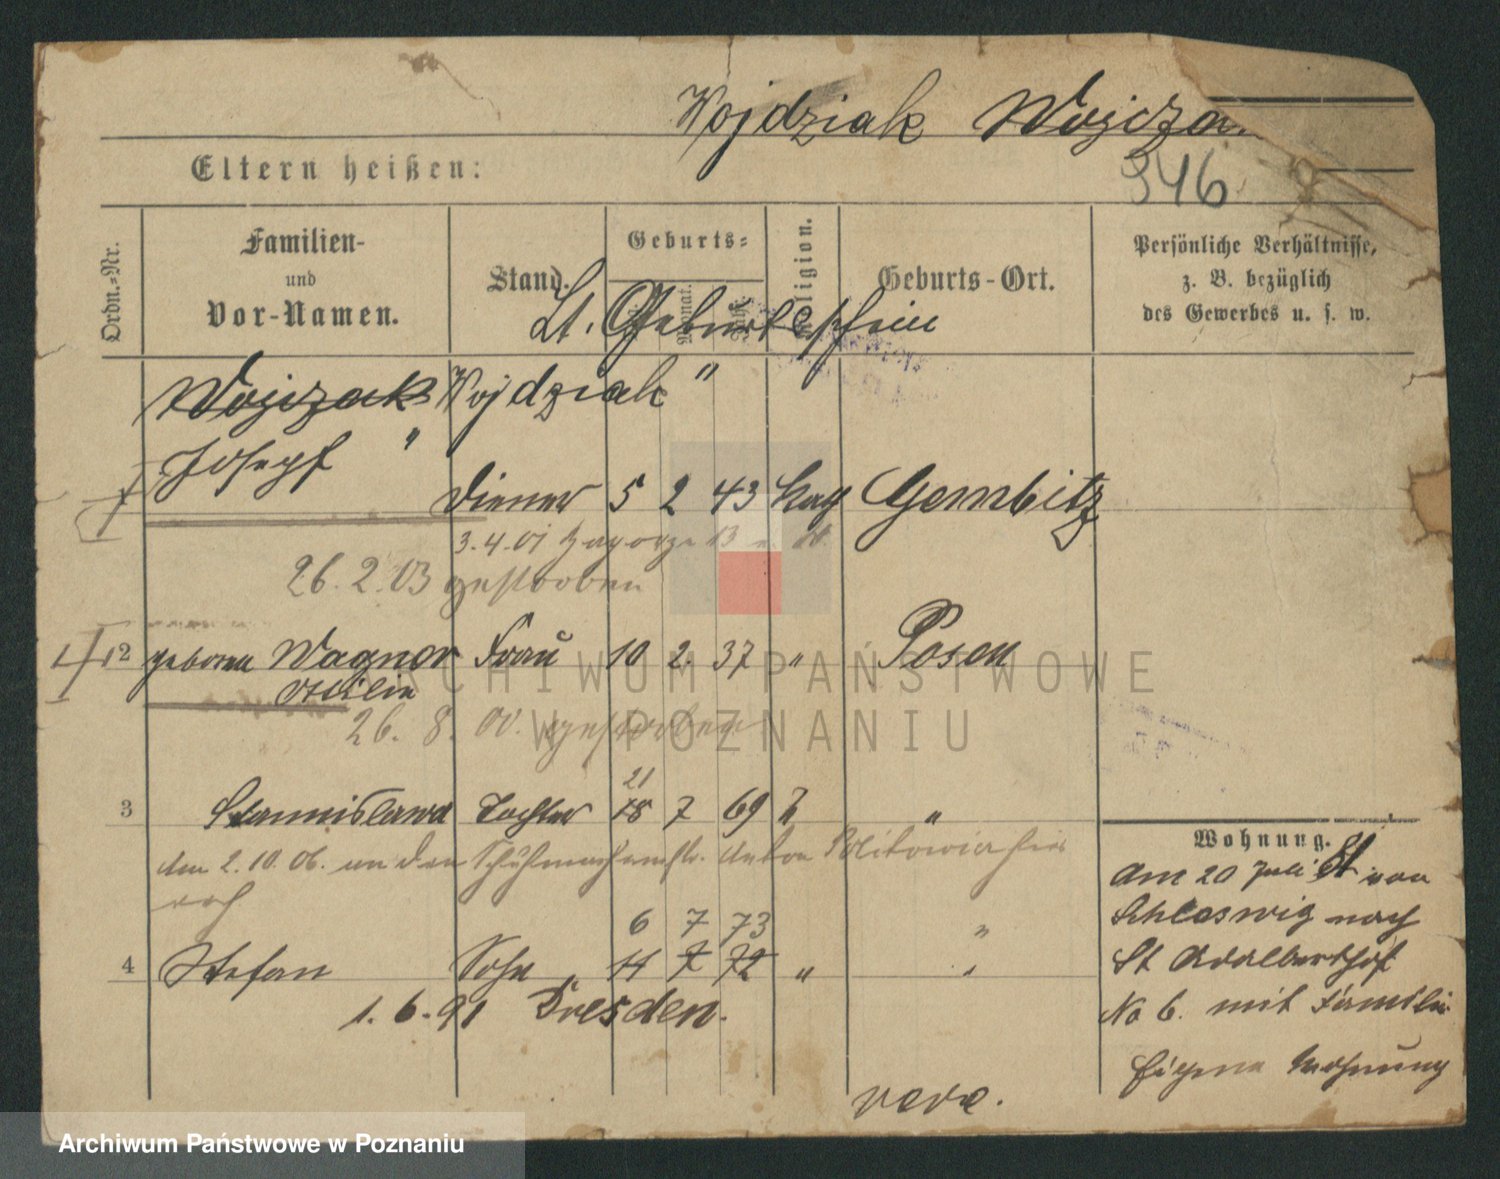 Wojdziak Wojcza
346
Eltern heißen:
Ordn.-Nr.
Familien-
und
Vor-Namen.
Stand.
Geburts-
Monat.
Religion.
Geburts-Ort.
Persönliche Verhältnisse,
z. B. bezüglich
des Gewerbes u. s. w.
Lt. Geburtsschein
Wojczak Wojdziak "
Josepf "
Diener 5 2 43 Kath Gembitz
3.4.01
26.2.03 gestorben
2 geborene Wagner Frau 10 2. 37 " Posen
Ottilie
26. 8. 00. gestorben
21
3 Stannislawa Tochter 18 7 69 "
am 2.10.06. an den Schuhmachermstr. Anton
6 7 73 "
4 Stefan Sohn 11 7 72 " "
1. 6. 91 Dresden.
Wohnung.
Am 20 Juli 81 von
Schleswig nach
St Adalberthof
No 6. mit Familie
Eigene Wohnung
ARCHIWUM PAŃSTWOWE
W POZNANIU
Archiwum Państwowe w Poznaniu